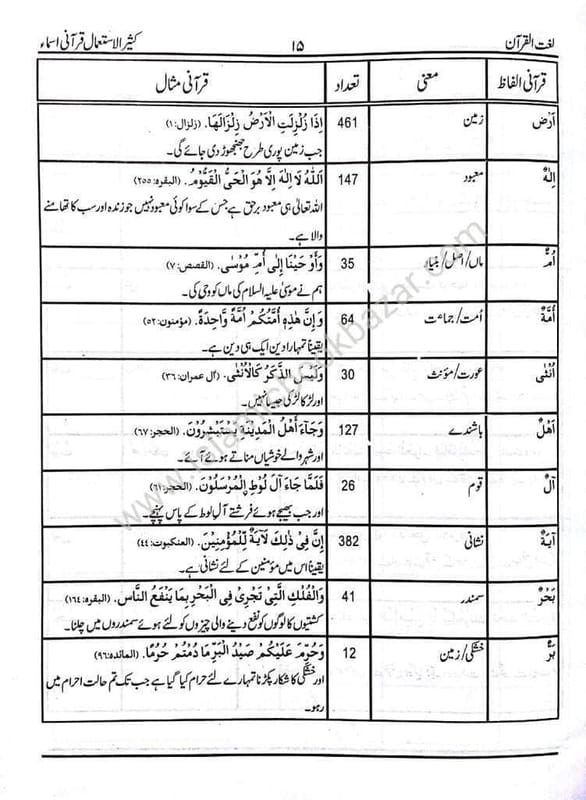 لغت القرآن ۱۵ کثیر الاستعمال قرآنی اسماء
قرآنی الفاظ معنی تعداد قرآنی مثال
اَرْضٌ زمین 461 اِذَا زُلْزِلَتِ الْاَرْضُ زِلْزَالَهَا. (زلزال:۱)
جب زمین پوری طرح جھنجھوڑ دی جائے گی۔
اِلٰهٌ معبود 147 اَللّٰهُ لَا اِلٰهَ اِلَّا هُوَ الْحَىُّ الْقَيُّوْمُ. (البقرہ:۲۵۵)
اللہ تعالیٰ ہی معبود برحق ہے جس کے سوا کوئی معبود نہیں جو زندہ اور سب کا تھامنے
والا ہے۔
اُمٌّ ماں/اصل/بنیاد 35 وَاَوْحَيْنَا اِلٰى اُمِّ مُوْسٰى. (القصص:۷)
ہم نے موسیٰ علیہ السلام کی ماں کو وحی کی۔
اُمَّةٌ امت/جماعت 64 وَاِنَّ هٰذِهٖ اُمَّتُكُمْ اُمَّةً وَّاحِدَةً. (مؤمنون:۵۲)
یقیناً تمہارا دین ایک ہی دین ہے۔
اُنْثٰى عورت/مؤنث 30 وَلَيْسَ الذَّكَرُ كَالْاُنْثٰى. (آل عمران:۳۶)
اور لڑکا لڑکی جیسا نہیں۔
اَهْلٌ باشندے 127 وَجَآءَ اَهْلُ الْمَدِيْنَةِ يَسْتَبْشِرُوْنَ. (الحجر:۶۷)
اور شہر والے خوشیاں مناتے ہوئے آئے۔
اٰلٌ قوم 26 فَلَمَّا جَاءَ اٰلَ لُوْطِ الْمُرْسَلُوْنَ. (الحجر:۶۱)
اور جب بھیجے ہوئے فرشتے آل لوط کے پاس پہنچے۔
اٰيَةٌ نشانی 382 اِنَّ فِىْ ذٰلِكَ لَاٰيَةً لِّلْمُؤْمِنِيْنَ. (العنکبوت:۴۴)
یقیناً اس میں مؤمنین کے لئے نشانی ہے۔
بَحْرٌ سمندر 41 وَالْفُلْكِ الَّتِىْ تَجْرِىْ فِى الْبَحْرِ بِمَا يَنْفَعُ النَّاسَ. (البقرہ:۱۶۴)
کشتیوں کا لوگوں کو نفع دینے والی چیزوں کو لئے ہوئے سمندروں میں چلنا۔
بَرٌّ خشکی/زمین 12 وَحُرِّمَ عَلَيْكُمْ صَيْدُ الْبَرِّ مَا دُمْتُمْ حُرُمًا. (المائدہ:۹۶)
اور خشکی کا شکار پکڑنا تمہارے لئے حرام کیا گیا ہے جب تک تم حالت احرام میں
رہو۔
www.islamicbookbazar.com